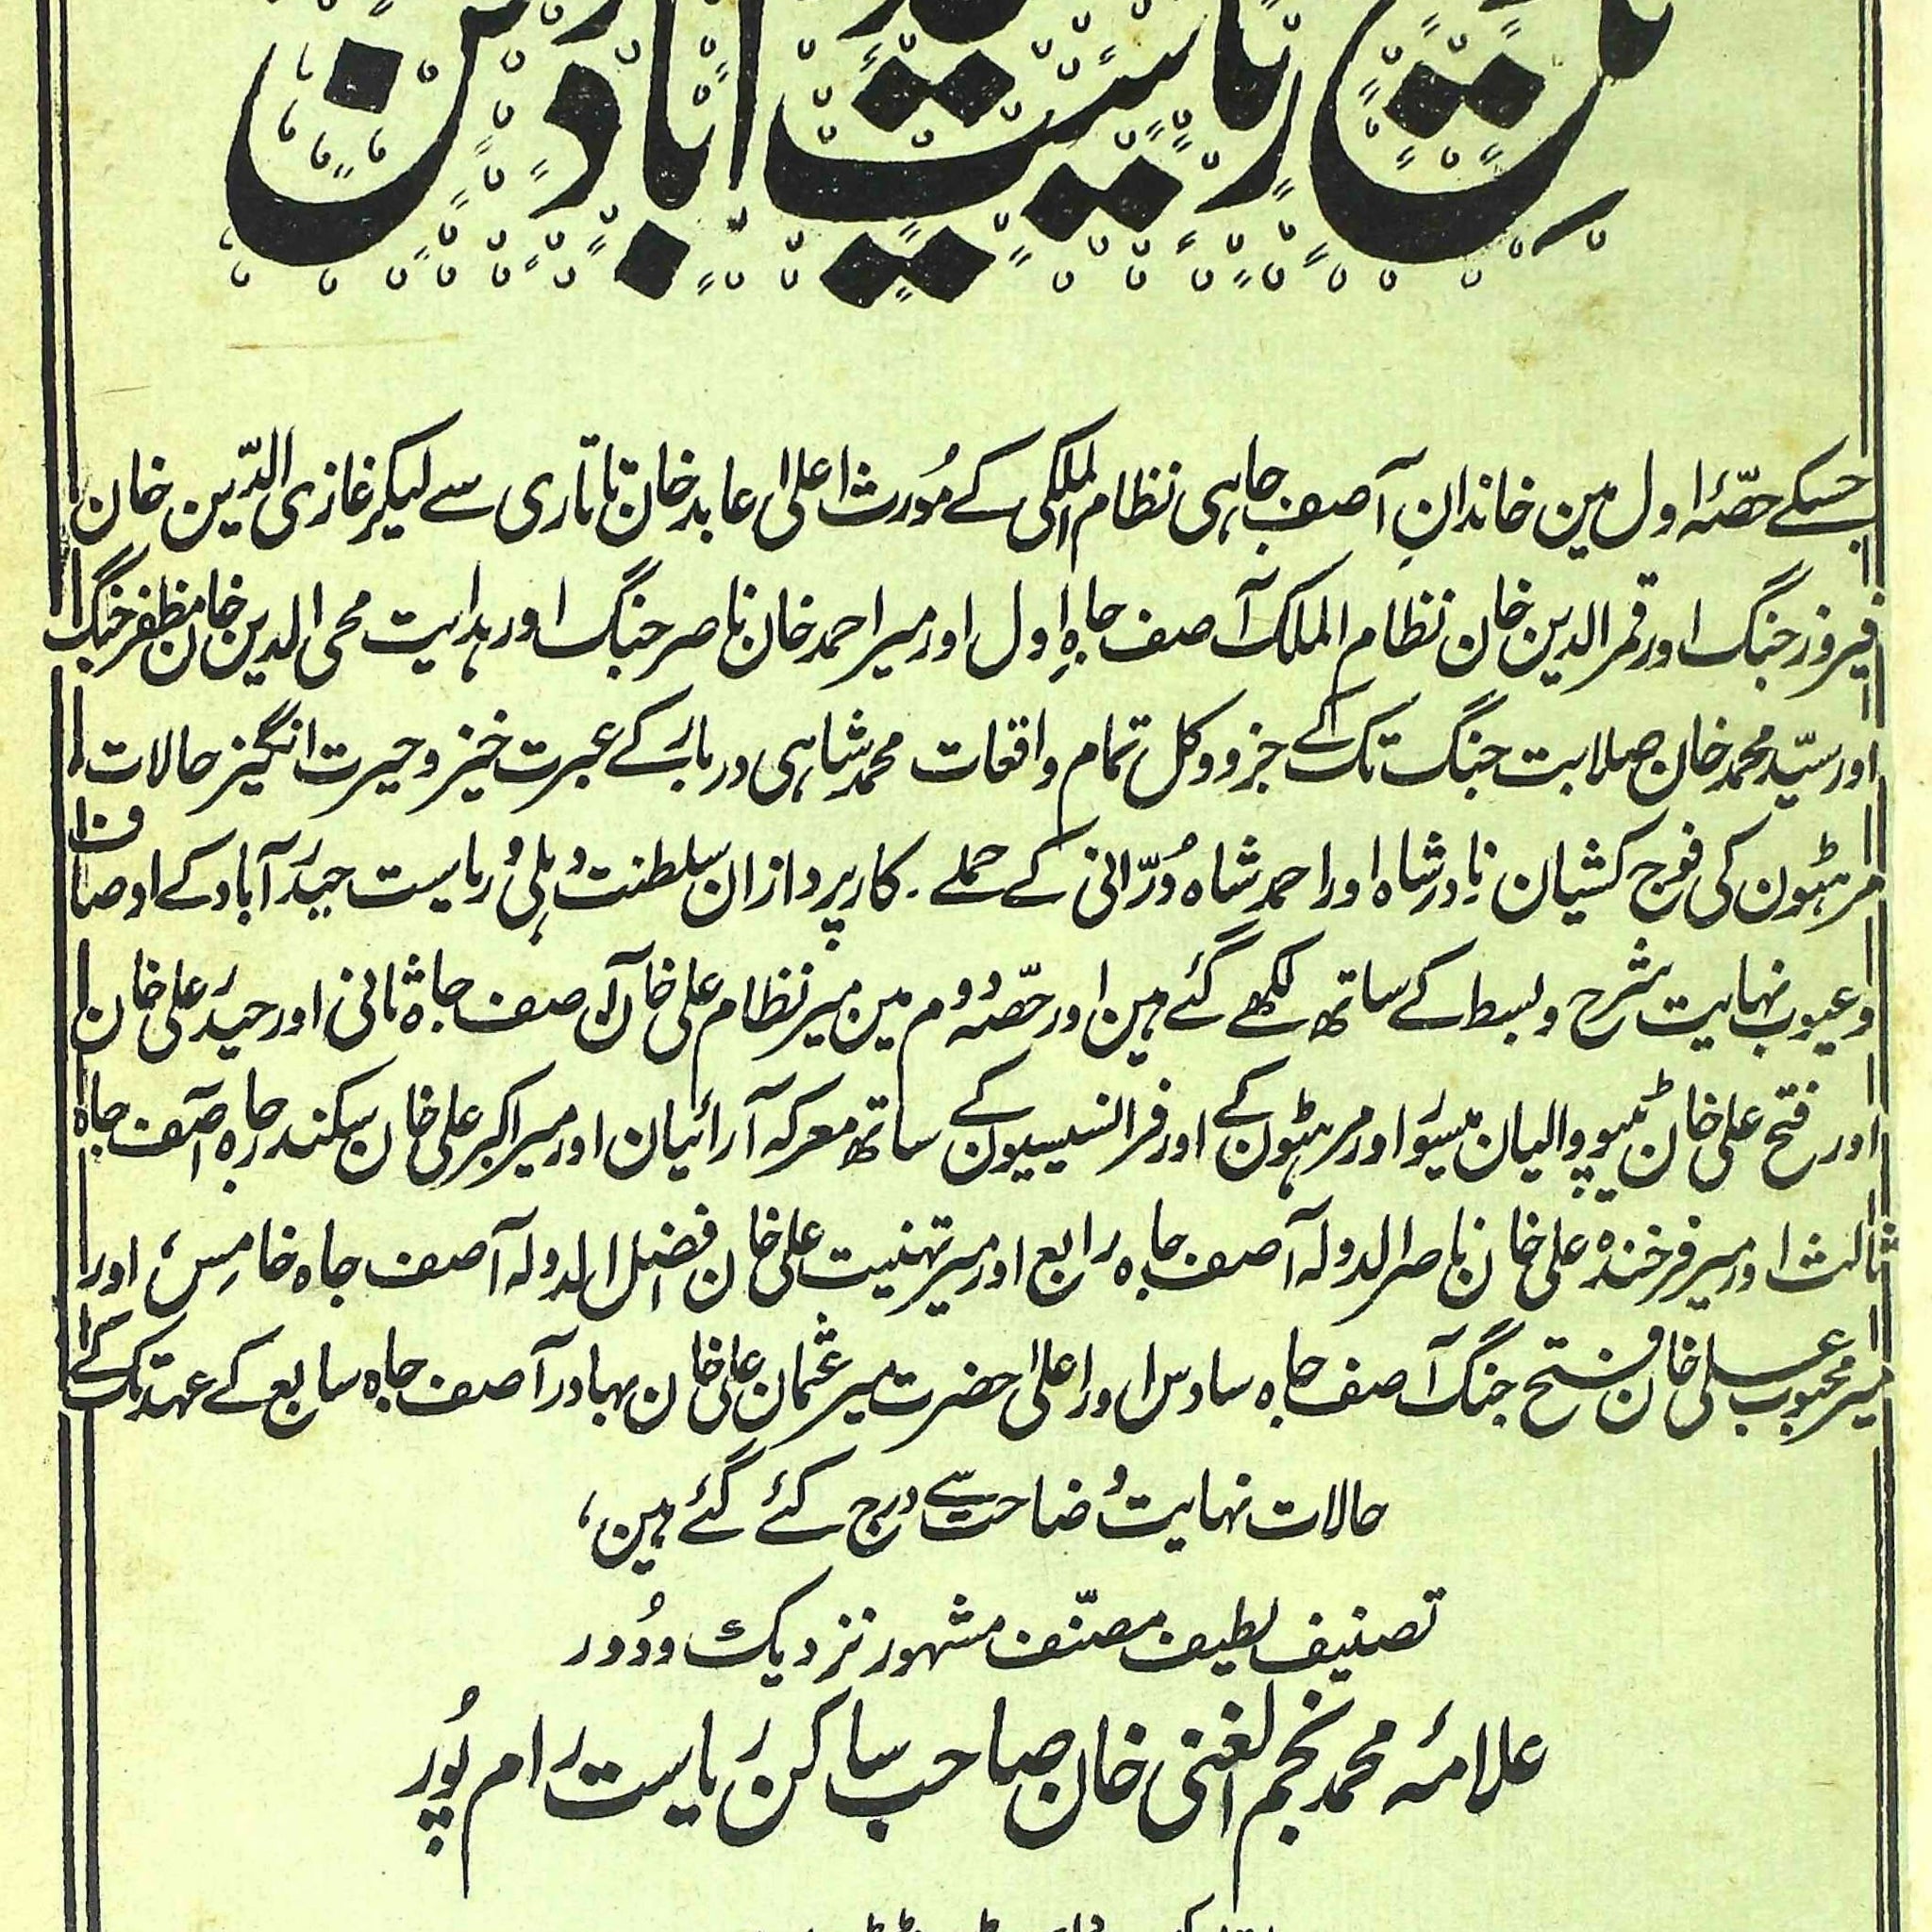 تاریخ ریاست حیدرآباد دکن
جسکے حصّۂ اول مین خاندانِ آصف جاہی نظام الملکی کے مُورث اعلیٰ عابد خان تاتاری سے لیکر غازی الدّین خان
فیروز جنگ اور قمر الدین خان نظام الملک آصف جاہِ اول اور میر احمد خان ناصر جنگ اور ہدایت محی الدین خان مظفر جنگ
اور سیّد محمد خان صلابت جنگ تک کے جزو و کل تمام واقعات محمد شاہی دربار کے عبرت خیز و حیرت انگیز حالات
مرہٹون کی فوج کشیان نادر شاہ اور احمد شاہ دُرّانی کے حملے ۔ کار پردازان سلطنت دہلی و ریاست حیدرآباد کے اوصاف
و عیوب نہایت شرح و بسط کے ساتھ لکھے گئے ہین اور حصّہ دوم مین میر نظام علی خان آصف جاہ ثانی اور حیدر علی خان
اور فتح علی خان ٹیپو والیان میسور اور مرہٹون کے اور فرانسیسیون کے ساتھ معرکہ آرائیان اور میر اکبر علی خان سکندر جاہ آصف جاہ
ثالث اور میر فرخندہ علی خان ناصر الدولہ آصف جاہ رابع اور میر تہنیت علی خان افضل الدولہ آصف جاہ خامِس، اور
میر محبوب علی خان فتح جنگ آصف جاہ سادس اور اعلیٰ حضرت میر عثمان علی خان بہادر آصف جاہ سابع کے عہد تک کے
حالات نہایت وضاحت سے درج کئے گئے ہین،
تصنیف لطیف مصنّف مشہور نزدیک و دُور
علامۂ محمد نجم الغنی خان صاحب ساکن ریاست رام پُور